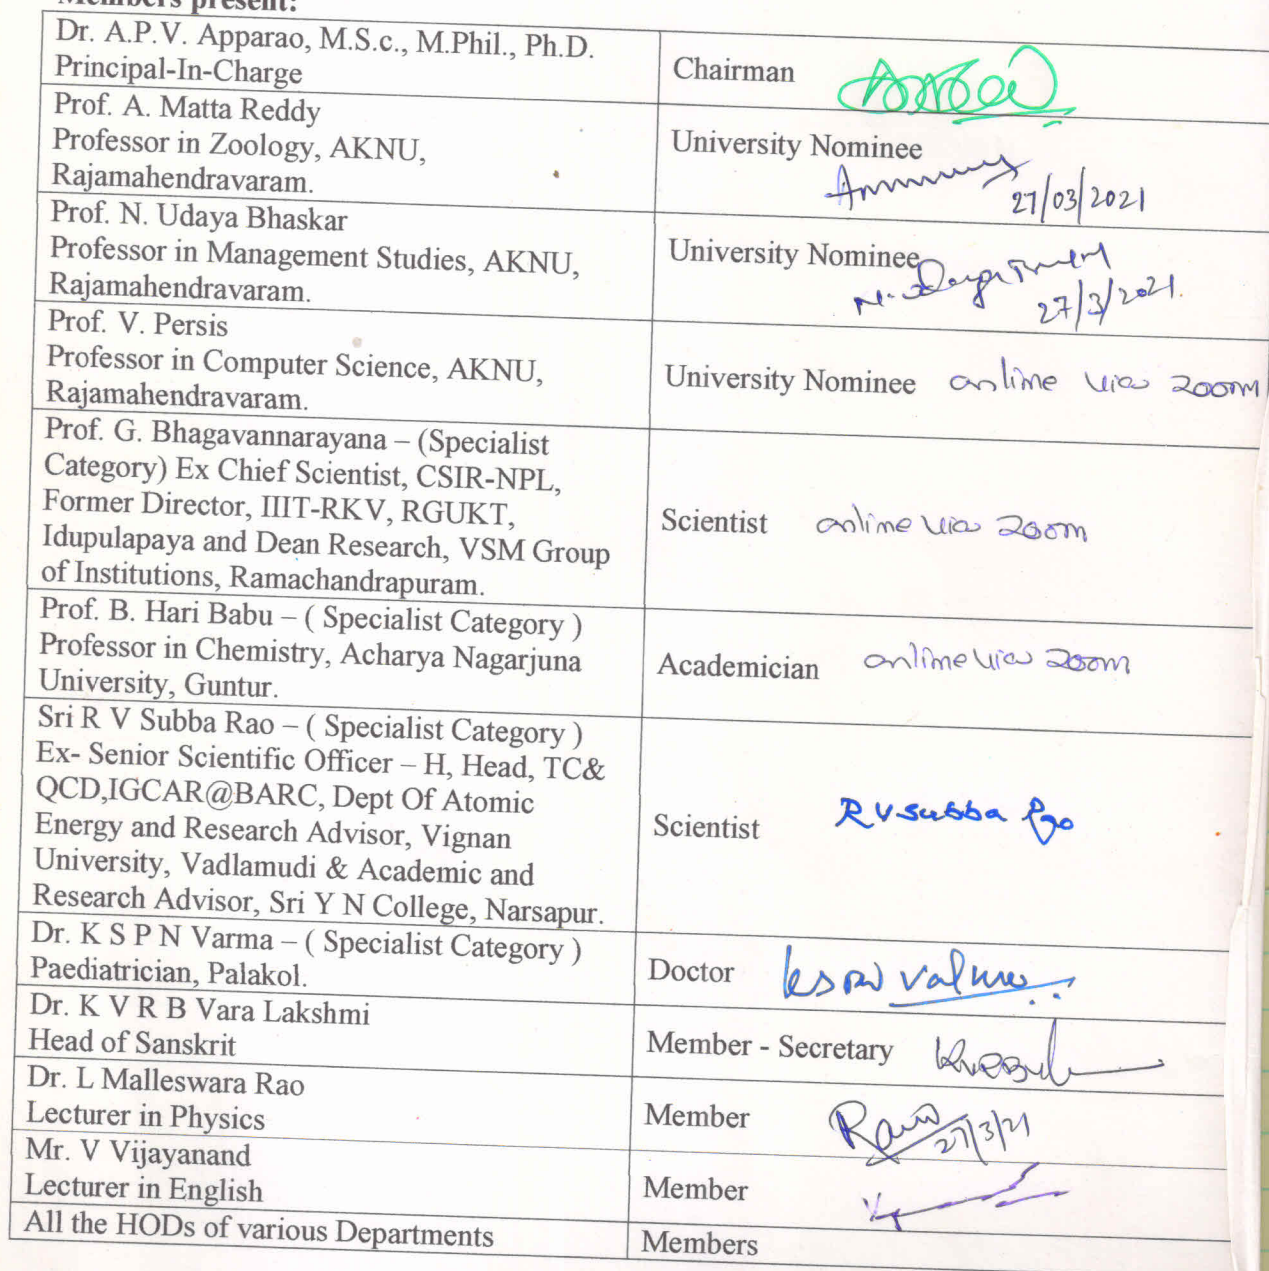 Members present:
Dr. A.P.V. Apparao, M.S.c., M.Phil., Ph.D.
Principal-In-Charge
Chairman
Prof. A. Matta Reddy
Professor in Zoology, AKNU,
Rajamahendravaram.
University Nominee
27/03/2021
Prof. N. Udaya Bhaskar
Professor in Management Studies, AKNU,
Rajamahendravaram.
University Nominee
27/3/2021.
Prof. V. Persis
Professor in Computer Science, AKNU,
Rajamahendravaram.
University Nominee online via zoom
Prof. G. Bhagavannarayana – (Specialist
Category) Ex Chief Scientist, CSIR-NPL,
Former Director, IIIT-RKV, RGUKT,
Idupulapaya and Dean Research, VSM Group
of Institutions, Ramachandrapuram.
Scientist online via zoom
Prof. B. Hari Babu – ( Specialist Category )
Professor in Chemistry, Acharya Nagarjuna
University, Guntur.
Academician online via zoom
Sri R V Subba Rao – ( Specialist Category )
Ex- Senior Scientific Officer – H, Head, TC&
QCD,IGCAR@BARC, Dept Of Atomic
Energy and Research Advisor, Vignan
University, Vadlamudi & Academic and
Research Advisor, Sri Y N College, Narsapur.
Scientist RV Subba Rao
Dr. K S P N Varma – ( Specialist Category )
Paediatrician, Palakol.
Doctor
Dr. K V R B Vara Lakshmi
Head of Sanskrit
Member - Secretary
Dr. L Malleswara Rao
Lecturer in Physics
Member
27/3/21
Mr. V Vijayanand
Lecturer in English
Member
All the HODs of various Departments
Members